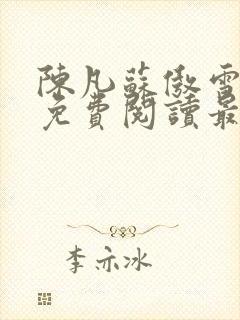 陳凡蘇傲雪
免費閱讀最
李亦冰